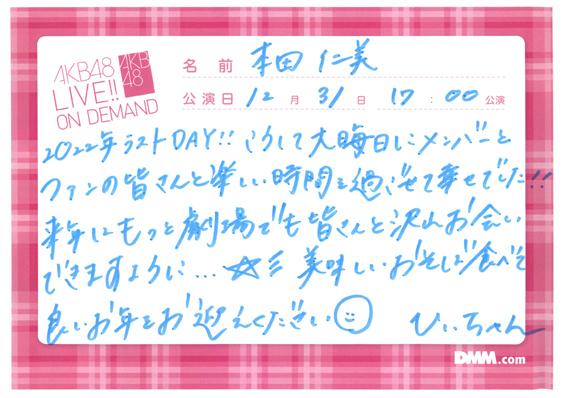 AKB48
LIVE!!
ON DEMAND
AKB
48
名前 本田 仁美
公演日 12月 31日 17:00 公演
2022年ラストDAY!! こうして大晦日にメンバーと
ファンの皆さんと楽しい時間を過ごせて幸せでした!!
来年はもっと劇場でも皆さんと沢山お会い
できますように...☆彡 美味しいおそば食べて
良いお年をお迎えください☺ ひぃちゃん
DMM.com